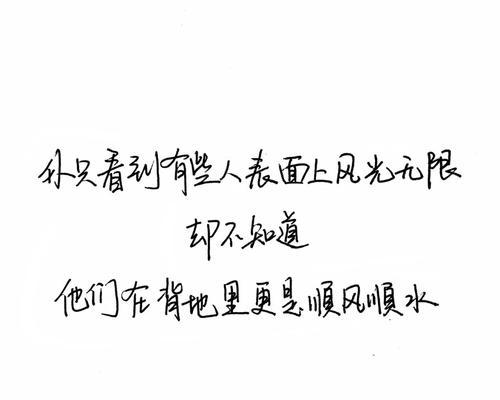 你只看到有些人表面上风光无限
却不知道
他们在背地里更是順风順水